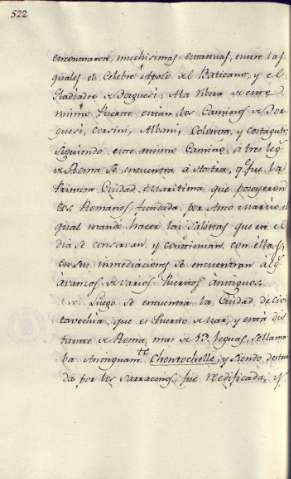 522
encontraron, muchisimas estatuas, entre las
quales el Celebre Apolo del Baticano, y el
Gladiador de Borguesi. A la Ribera de este
mismo Puerto estan los Casinos de Bor
guesi, Corsini, Albani, Colonna, y Costaguti;
Siguiendo este mismo Camino, a tres leg
de Roma se encuentra a Hostia, q.e fue la
Primera Ciudad Maritima que poseyeron
los Romanos fundada por Anco Marcio, el
qual mandó hacer las Salinas que en el
dia se conservan, y continuan con ellas, y
en sus inmediaciones se encuentran
de varios Puertos antiguos.
Luego se encuentra la Ciudad de Civi
tavechia, que es Puerto de Mar, y está dis
tante de Roma, mas de 13 leguas, se llama
ba Antiguam.te Chentochelle, y siendo destrui
da por los Sarracenos, fue reedificada, y